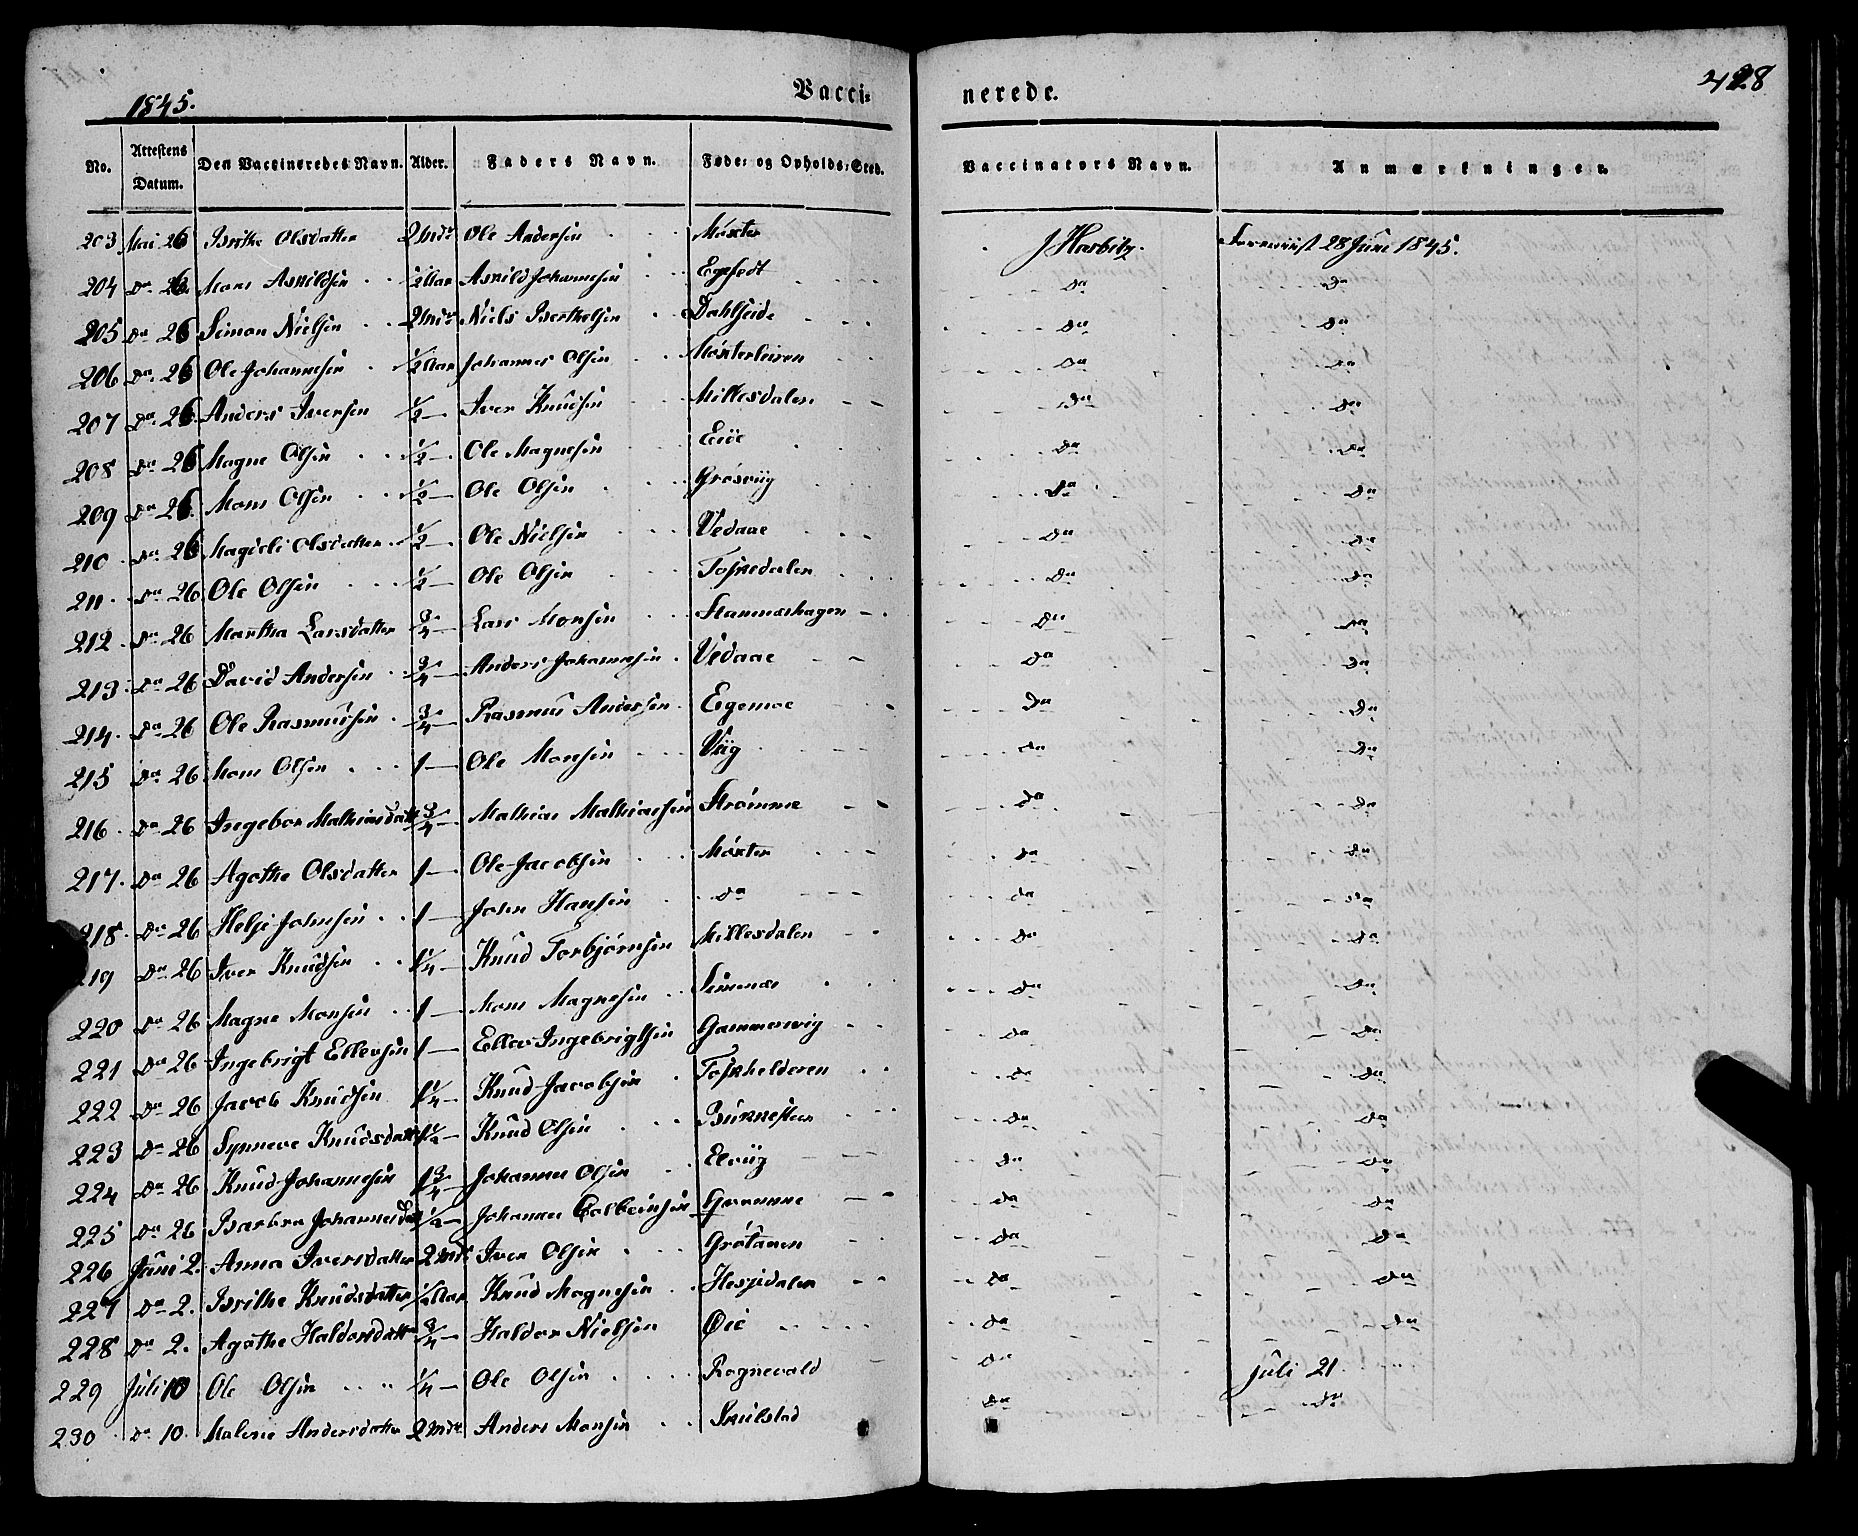 1845.
Vacci- nerede.
428
No. Attestens Datum. Den Vaccineredes Navn. Alder. Faders Navn. Føde- og Opholds-Sted. Vaccinators Navn. Anmærkninger.
203 Mai 26 Brithe Olsdatter 2 Mdr Ole Andersen Møxter J Harbitz. Foreviist 28 Juni 1845.
204 Do 26 Mons Askildsen 1/2 Aar Askild Johannesen Do Do
205 Do 26 Simon Nielsen 2 Mdr Niels Berthelsen Dahlseide Do Do
206 Do 26 Ole Johannesen 1/2 Aar Johannes Olsen Møxterleiren Do Do
207 Do 26 Anders Iversen 1/2 — Iver Knudsen Millesdalen Do Do
208 Do 26 Magne Olsen 1/2 — Ole Magnesen Do Do
209 Do 26 Mons Olsen 1/2 — Ole Olsen Grøsviig Do Do
210 Do 26 Magdeli Olsdatter 1/2 — Ole Nielsen Vedaae Do Do
211 Do 26 Ole Olsen 1/2 — Ole Olsen Toskedalen Do Do
212 Do 26 Martha Larsdatter 3/4 — Lars Monsen Do Do
213 Do 26 David Andersen 3/4 — Anders Johannesen Vedaae Do Do
214 Do 26 Ole Rasmusen 3/4 — Rasmus Andersen Egemoe Do Do
215 Do 26 Mons Olsen 1 — Ole Monsen Viig Do Do
216 Do 26 Ingebor Mathiasdatt 3/4 — Mathias Mathiasen Strømme Do Do
217 Do 26 Agathe Olsdatter 1 — Ole Jacobsen Møxter Do Do
218 Do 26 Helje Johnsen 1 — John Hansen Do Do Do
219 Do 26 Iver Knudsen 1 1/4 — Knud Torbjørnsen Millesdalen Do Do
220 Do 26 Magne Monsen 1 — Mons Magnesen Do Do
221 Do 26 Ingebrigt Ellevsen 1 — Ellev Ingebrigtsen Gammersvig Do Do
222 Do 26 Jacob Knudsen 1 1/4 — Knud Jacobsen Do Do
223 Do 26 Synneve Knudsdatt 1 1/2 — Knud Olsen Do Do
224 Do 26 Knud Johannesen 1 3/4 — Johannes Olsen Do Do
225 Do 26 Barbra Johannesd 1/2 — Johannes Colbeinsen Do Do
226 Juni 2. Anna Iversdatter 2 Mdr Iver Olsen Do Do
227 Do 2. Brithe Knudsdatter 1/2 Aar Knud Magnesen Do Do
228 Do 2. Agathe Haldorsdatt 3/4 — Haldor Nielsen Øie Do Do
229 Juli 10 Ole Olsen 1/4 — Ole Olsen Rognevald Do Juli 21.
230 Do 10. Malene Andersdatter 2 Mdr Anders Monsen Skulstad Do Do